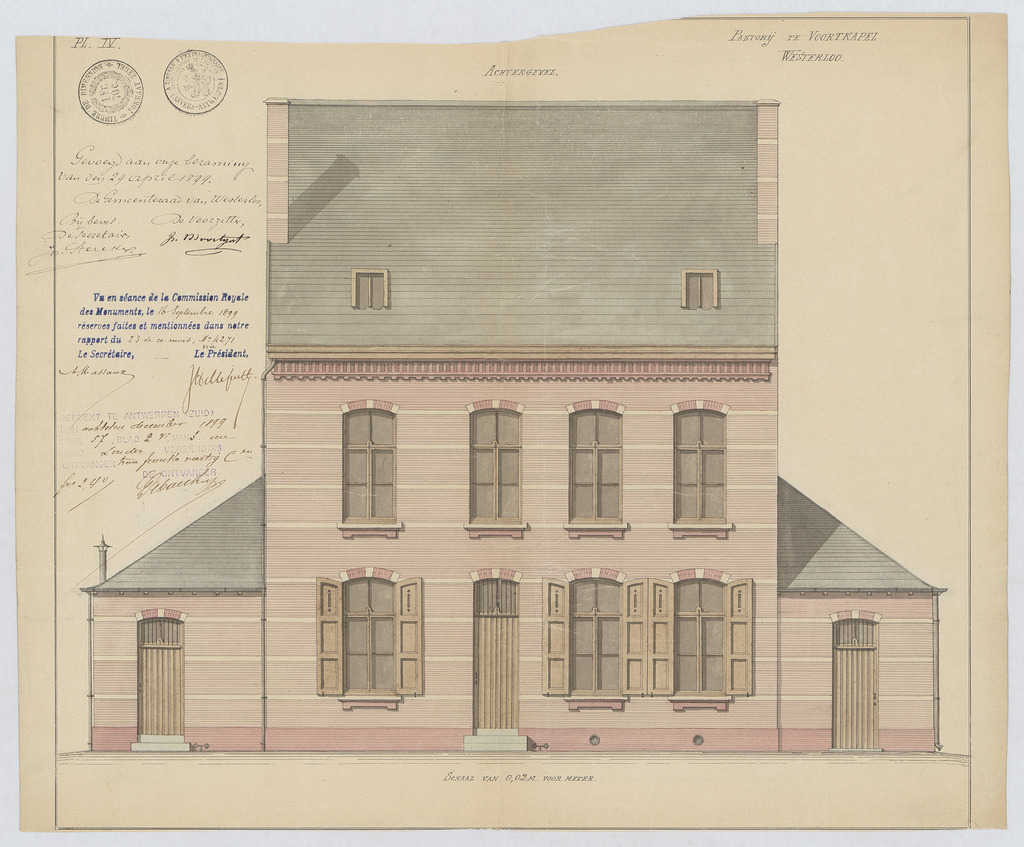 Pl. IV.
Pastorij te Voortkapel
Westerloo.
Achtergevel.
TIMBRE DE DIMENSION
Gevoegd aan onze beraming
van den 29 april 1899.
De Gemeenteraad van Westerloo,
Bij bevel.
De Voorzitter,
De Secretaris
Vu en séance de la Commission Royale
des Monuments, le 16 Septembre 1899
réserves faites et mentionnées dans notre
rapport du 23 de ce mois, N° 4271
Le Secrétaire,
Le Président,
TE ANTWERPEN (ZUID)
achttien december 1899
57, BLAD 2 V, VAK 5
VERZENDING
ONTVANGEN twee frank veertig C en
DE ONTVANGER
fr 2,40
Schaal van 0,02m. voor meter.